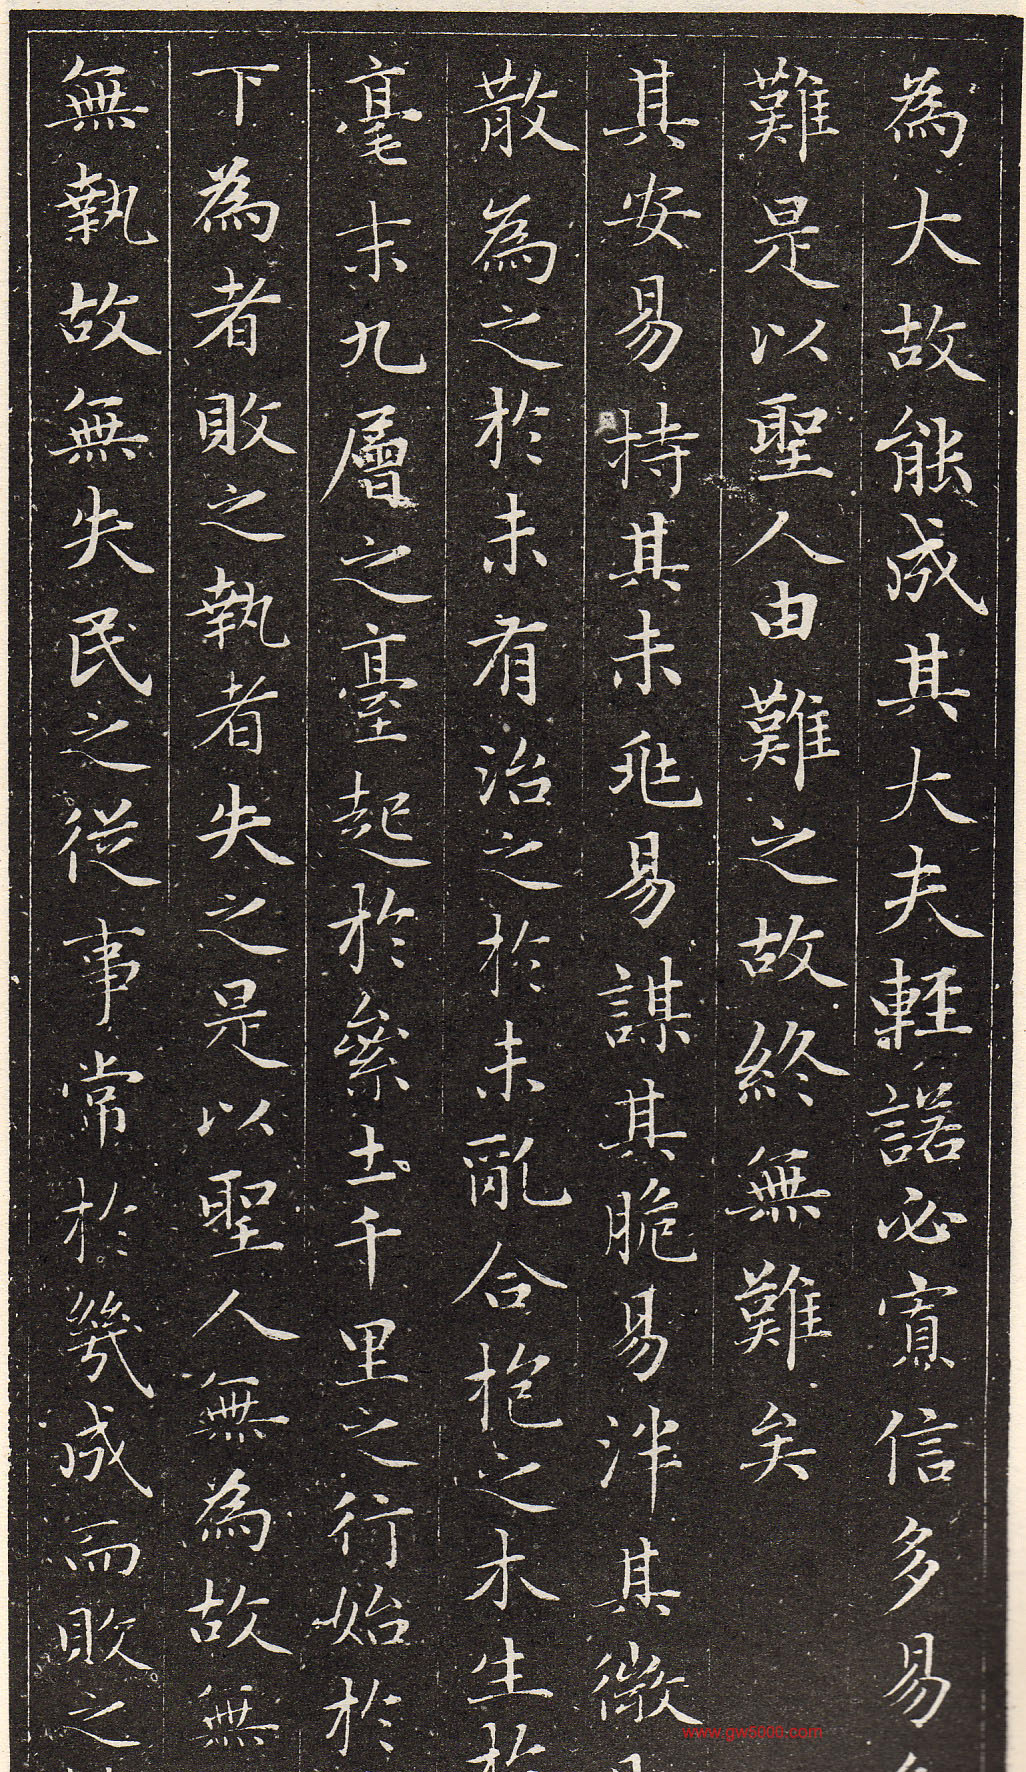 為大故能成其大夫輕諾必寡信多易
難是以聖人由難之故終無難矣
其安易持其未兆易謀其脆易泮其微
散為之於未有治之於未亂合抱之木生於
毫末九層之臺起於絫土千里之行始於
下為者敗之執者失之是以聖人無為故無
無執故無失民之從事常於幾成而敗之
www.gw5000.com